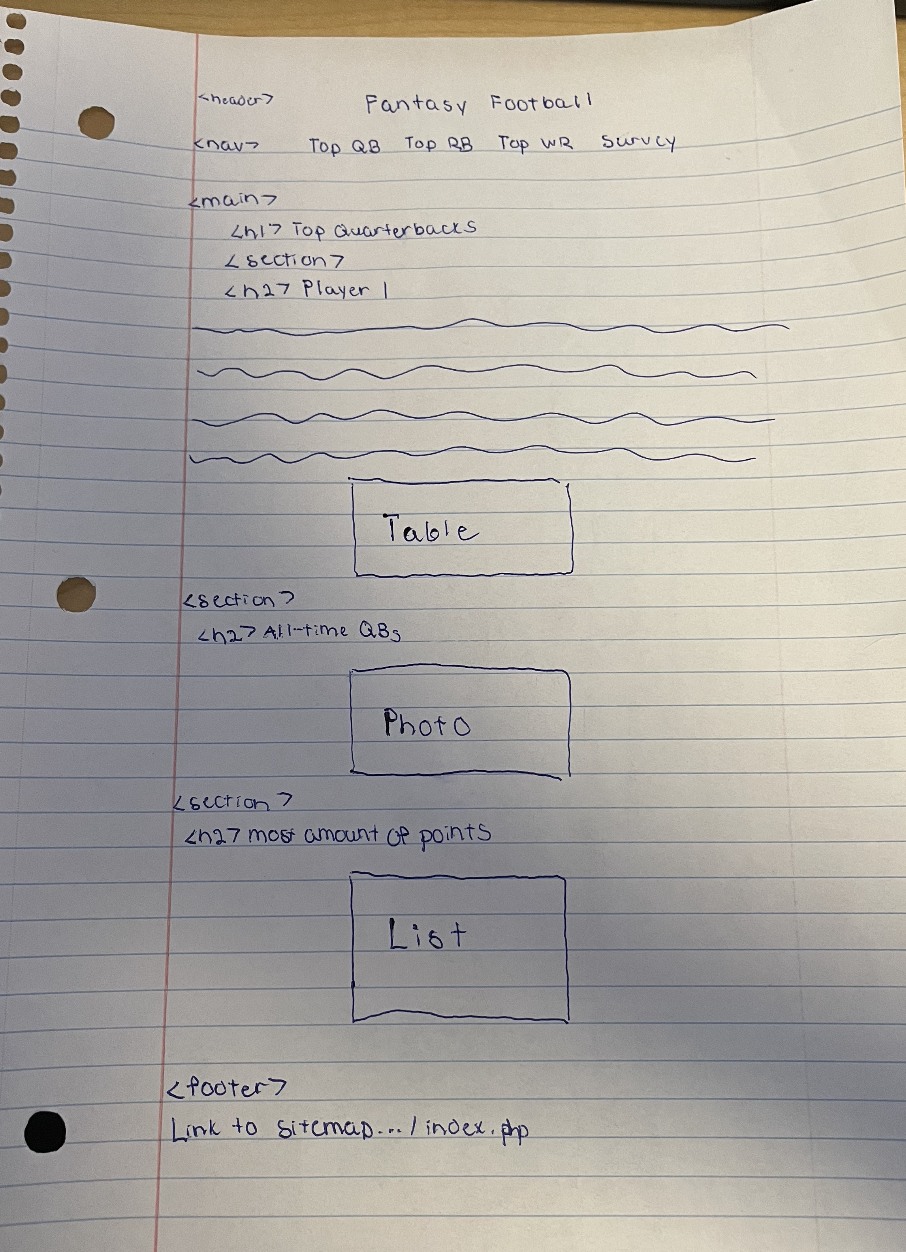 <header> Fantasy Football
<nav> Top QB Top RB Top WR Survey
<main>
<h1> Top Quarterbacks
<section>
<h2> Player 1
Table
<section>
<h2> All-time QBs
Photo
<section>
<h2> most amount of points
List
<footer>
Link to sitemap.../index.php